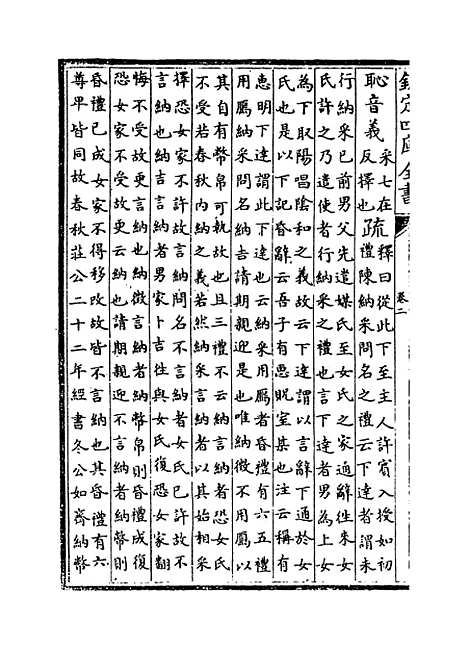 欽定四庫全書
卷二
恥音義
采七在
反擇也
疏
釋曰從此下至主人許賓入授如初
禮陳納采問名之禮云下達者謂未
行納采已前男父先遣媒氏至女氏之家通辭徃來女
氏許之乃遣使者行納采之禮也言下達者男為上女
為下取陽唱隂和之義故云下達謂以言辭下通於女
氏也是以下記昏辭云吾子有惠貺室某也注云稱有
惠明下達謂此下達也云納采用鴈者昏禮有六五禮
用鴈納采問名納吉請期親迎是也唯納徵不用鴈以
其自有幣帛可執故也且三禮不云納言納者恐女氏
不受若春秋内納之義若然納采言納者以其始相采
擇恐女家不許故言納問名不言納者女氏已許故不
言納也納吉言納者男家卜吉徃與女氏復恐女家翻
悔不受故更言納也納徵言納者納幣帛則昏禮成復
恐女家不受故更云納也請期親迎不言納者納幣則
昏禮已成女家不得移改故皆不言納也其昏禮有六
尊卑皆同故春秋莊公二十二年經書冬公如齊納幣